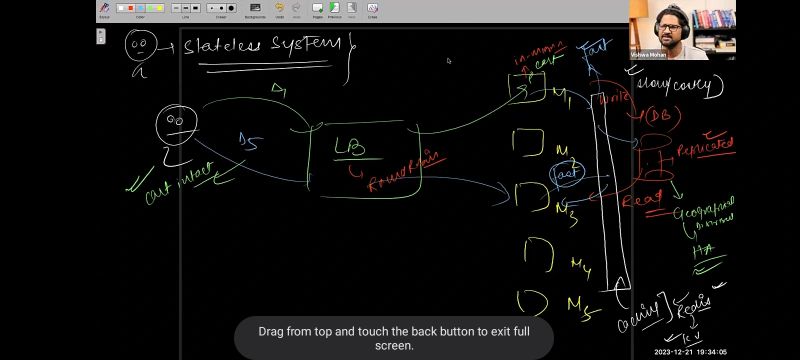 Stylus
Color
Lines
Eraser
Undo
Redo
Pages
Previous
Next
Erase
Vishwa Mohan
Stateless System
in-memory
cart
Fast
S1
M1
slow/costly
write
(DB)
Δ1
LB
Round Robin
Δ5
M2
Replicated
cart intact
Fast
M3
Read
Geographical
Distributed
HA
M4
M5
caching
Redis
KV
Drag from top and touch the back button to exit full
screen.
2023-12-21 19:34:05